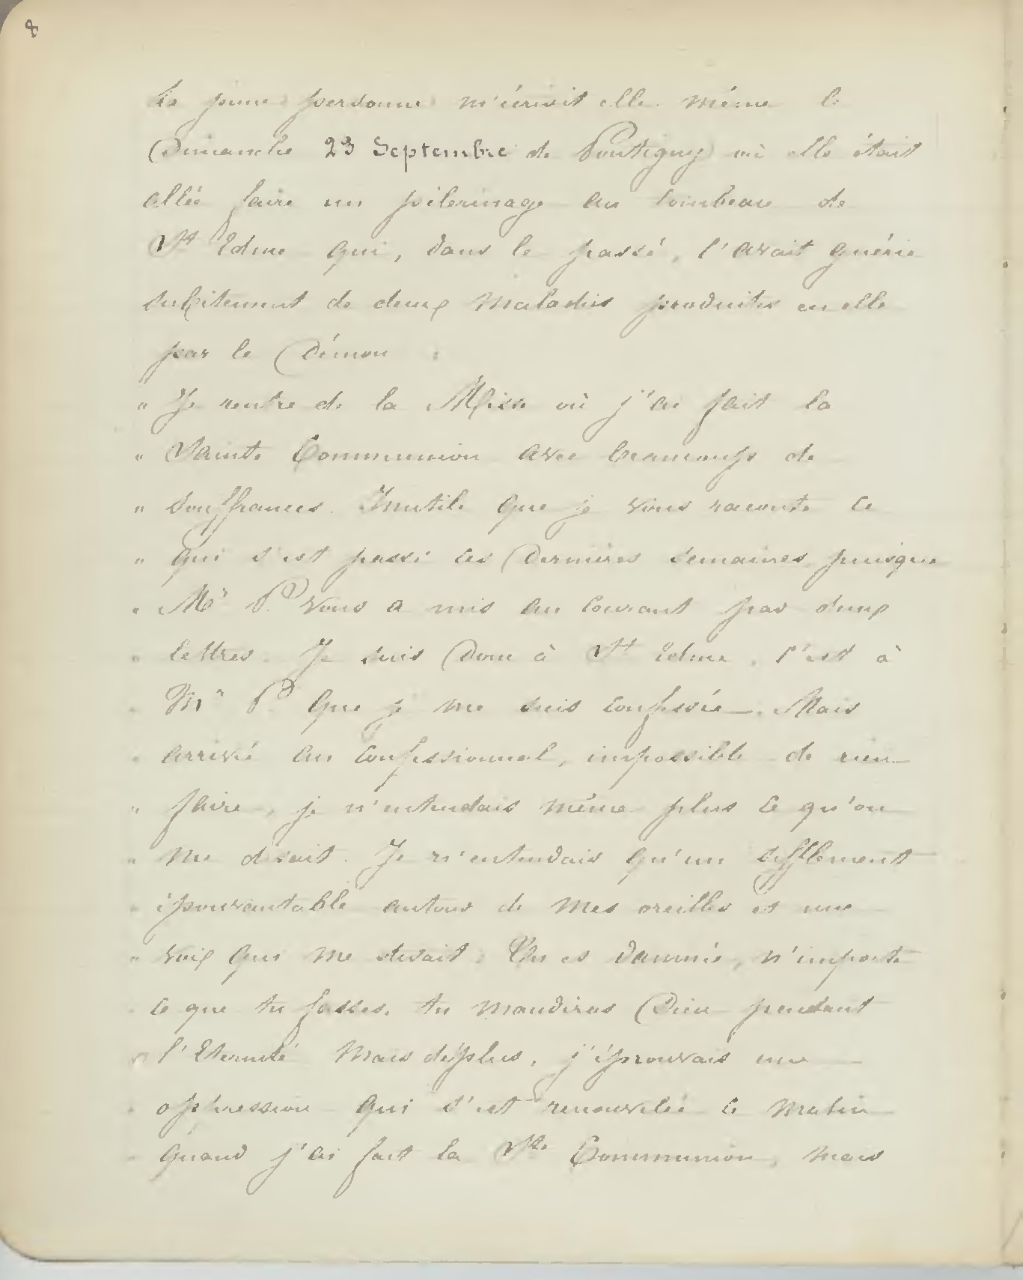 8
La jeune personne m'écrivit elle même le
Dimanche 23 Septembre de Pontigny où elle était
allée faire un pèlerinage au tombeau de
St Edme qui, dans le passé, l'avait guérie
subitement de deux maladies produites en elle
par le Démon :
" Je rentre de la Messe où j'ai fait la
" Sainte Communion avec beaucoup de
" souffrances. Inutile que je vous raconte ce
" qui s'est passé ces Dernières semaines puisque
" Mr P. vous a mis au courant par deux
" lettres. Je suis Donc à St Edme. C'est à
" Mr P. que je me suis confessée. Mais
" arrivé au confessionnal, impossible de rien
" faire, je n'entendais même plus ce qu'on
" me disait. Je n'entendais qu'un sifflement
" épouvantable autour de mes oreilles et une
" voix qui me disait : Tu es damnée, n'importe
" ce que tu fasses. tu maudiras Dieu pendant
" l'Eternité Mais de plus, j'éprouvais une
" oppression qui s'est renouvelée ce matin
" quand j'ai fait la Ste Communion, mais